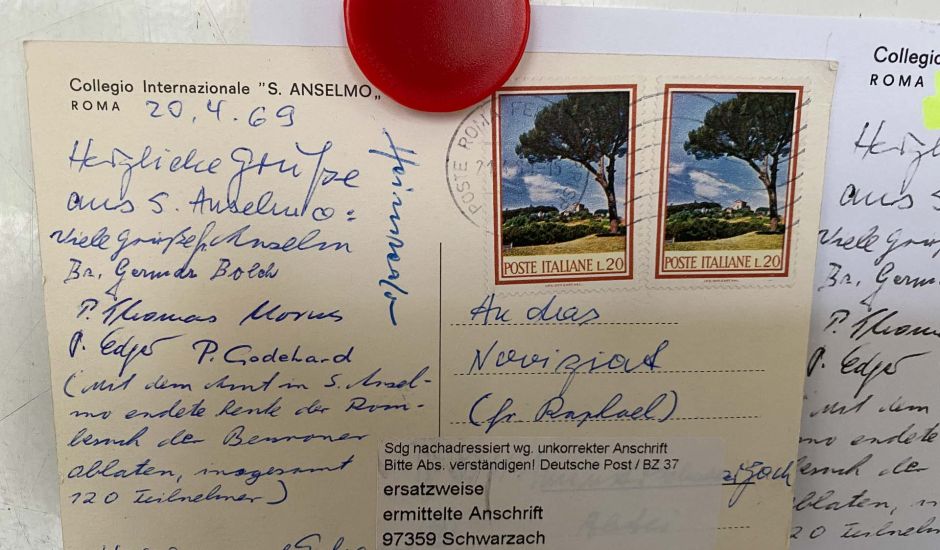 Collegio Internazionale "S. ANSELMO„
ROMA
20.4.69
Herzliche Grüße
aus S. Anselmo:
Viele Grüße P. Anselm
Br. German Bolch
P. Thomas Morus
P. Edgar P. Godehard
(Mit dem Amt in S. Ansel-
mo endete heute der Rom-
besuch der Benroner
oblaten, insgesamt
120 Teilnehmer)
POSTE ROMA FE
POSTE ITALIANE L.20
POSTE ITALIANE L.20
An das
Noviziat
(fr. Raphael)
Sdg nachadressiert wg. unkorrekter Anschrift
Bitte Abs. verständigen! Deutsche Post / BZ 37
ersatzweise
ermittelte Anschrift
97359 Schwarzach
Abtei
Collegio
ROMA
Herzl
aus S
Viele Gr
Br. Ger
P. Thoma
P. Edgar
(Mit dem
mo endete
besuch der
oblaten, in
120 Teilne